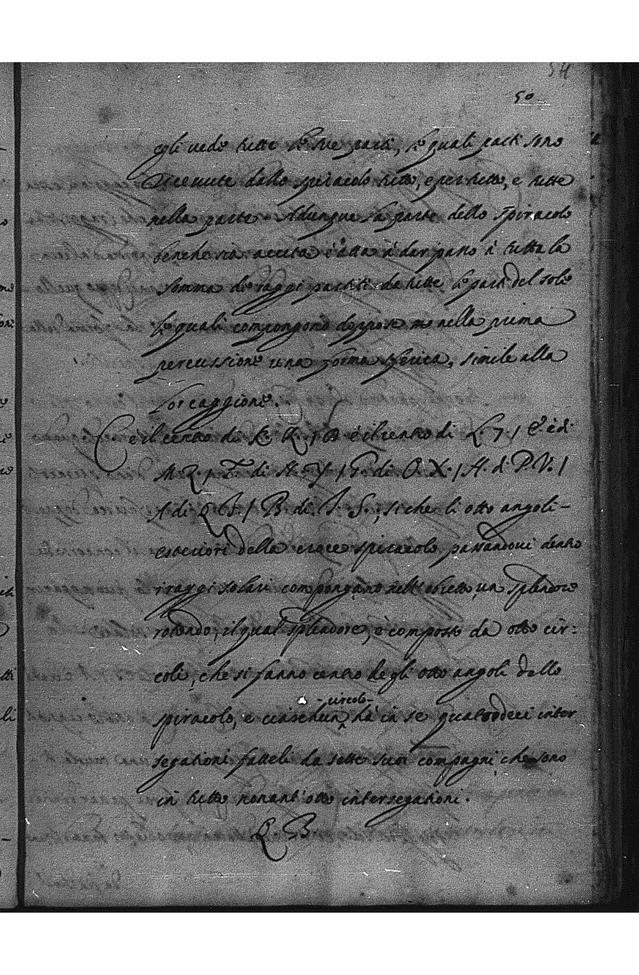 54
50
egli vede tutte le sue parti, le quali parti sono
vedute dallo spiracolo tutto, e per tutto, e tutte
nella parte. Adunque la parte dello spiracolo
benche sia acuta è atta à dar passo à tutta la
somma de raggi partiti da tutte le parti del sole
le quali compongono doppo me nella prima
percussione una forma sferica, simile alla
lor caggione.
C è il centro di K. R. | D è il centro di L. 7 | E è di
M. R. | F. di N. Y. | G. di O. X. | H. di P. V. |
A di Q. | B. di I. S., si che li otto angoli
esteriori della croce spiracolo, passandovi dentro
i raggi solari compongano nell'obietto, un splendore
rotondo, il qual splendore, è composto da otto cir-
coli, che si fanno centro degli otto angoli dello
-circolo-
spiracolo, e ciascheun hà in se quatordeci inter
segationi fatteli da sette suoi compagni, che sono
in tutto nonant'otto intersegationi.
L B